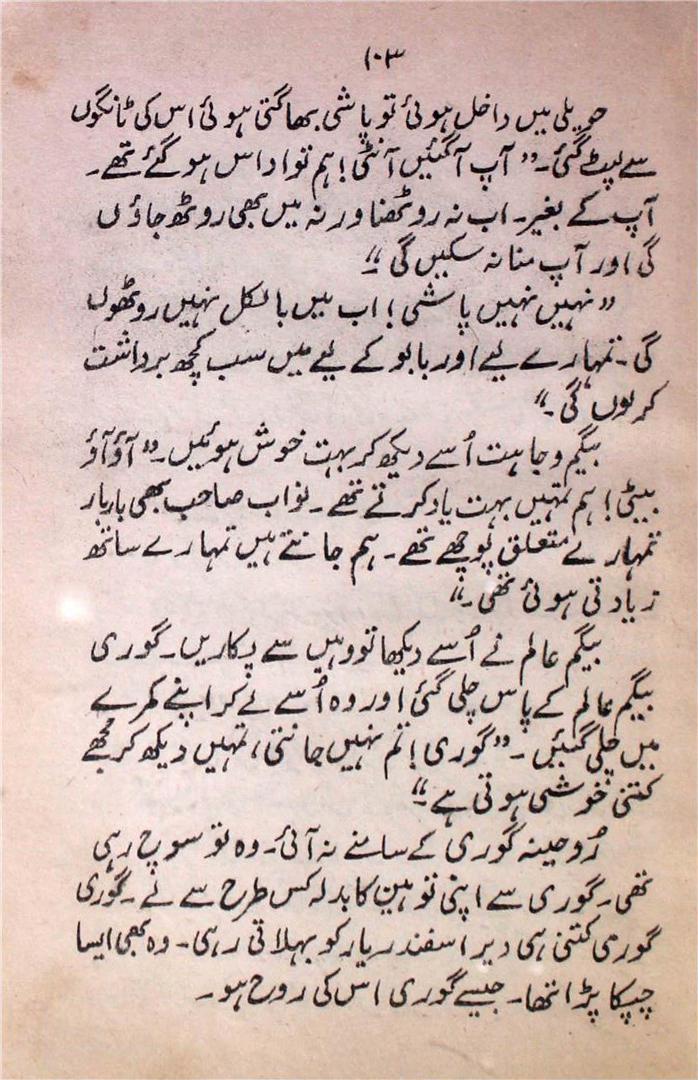 ۱۰۳
حویلی میں داخل ہوئی تو پاشی بھاگتی ہوئی اس کی ٹانگوں
سے لپٹ گئی۔ ”آپ آگئیں آنٹی! ہم تو اداس ہو گئے تھے۔
آپ کے بغیر۔ اب نہ روٹھنا ورنہ میں بھی روٹھ جاؤں
گی اور آپ منا نہ سکیں گی“
”نہیں نہیں پاشی! اب میں بالکل نہیں روٹھوں
گی۔ تمہارے لیے اور بابو کے لیے میں سب کچھ برداشت
کر لوں گی۔“
بیگم وجاہت اُسے دیکھ کر بہت خوش ہوئیں۔ ”آؤ آؤ
بیٹی! ہم تمہیں بہت یاد کرتے تھے۔ نواب صاحب بھی بار بار
تمہارے متعلق پوچھے تھے۔ ہم جانتے ہیں تمہارے ساتھ
زیادتی ہوئی تھی۔“
بیگم عالم نے اُسے دیکھا تو وہیں سے پکاریں۔ گوری
بیگم عالم کے پاس چلی گئی اور وہ اُسے لے کر اپنے کمرے
میں چلی گئیں۔ ”گوری! تم نہیں جانتی، تمہیں دیکھ کر مجھے
کتنی خوشی ہوتی ہے“
رُوحینہ گوری کے سامنے نہ آئی۔ وہ تو سوچ رہی
تھی۔ گوری سے اپنی توہین کا بدلہ کس طرح سے لے۔ گوری
گوری کتنی ہی دیر اسفند ریار کو بہلاتی رہی۔ وہ بھی ایسا
چپکا پڑا تھا۔ جیسے گوری اس کی روح ہو۔